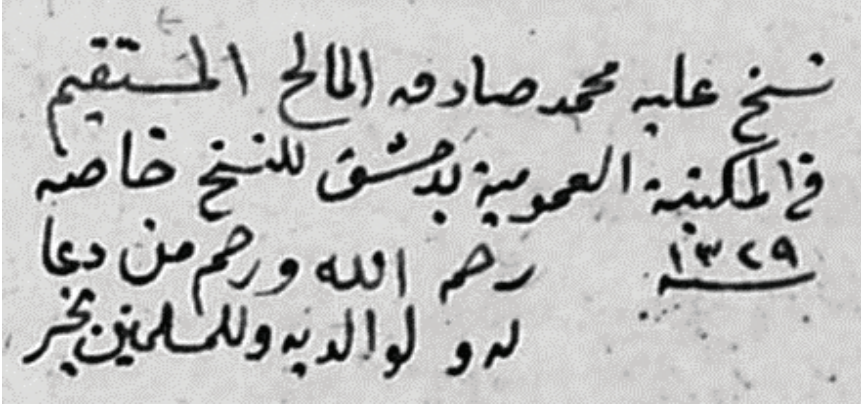 نسخ عليه محمد صادق المالح المستقيم
في المكتبة العمومية بدمشق للنسخ خاصة
١٣٢٩ رحم الله ورحم من دعا
له و لوالديه وللمسلمين بخير